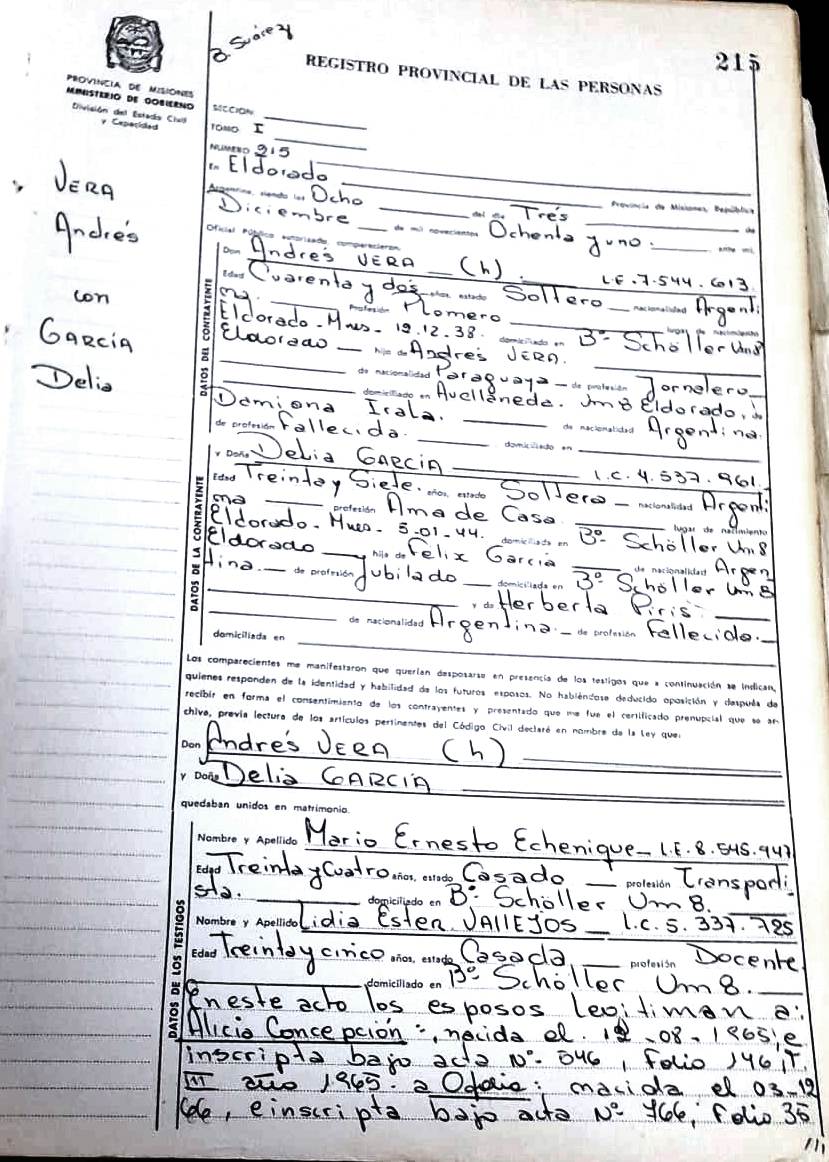 B. Suárez
215
REGISTRO PROVINCIAL DE LAS PERSONAS
PROVINCIA DE MISIONES
MINISTERIO DE GOBIERNO
División del Estado Civil
y Capacidad
SECCION
TOMO I
NUMERO 215
En Eldorado
Provincia de Misiones, República
Argentina, siendo las Ocho del día Tres de
Diciembre de mil novecientos Ochenta y uno. ante mí,
Oficial Público autorizado, comparecieron
VERA
Andrés
con
GARCÍA
Delia
DATOS DEL CONTRAYENTE
Don Andrés VERA (h). L.E.7.544.613.
Edad Cuarenta y dos años, estado Soltero nacionalidad Argenti
na. Profesión Plomero lugar de nacimiento
Eldorado-Mnes- 19.12.38. domiciliado en Bº Schöller Um8
Eldorado hijo de Andrés VERA.
de nacionalidad Paraguaya de profesión Jornalero
domiciliado en Avellaneda. Jm8 Eldorado, de
Damiana Irala. de nacionalidad Argentina.
de profesión Fallecida. domiciliado en
DATOS DE LA CONTRAYENTE
y Doña Delia GARCIA L.C. 4.537.961.
Edad Treinta y Siete. años, estado Soltera nacionalidad Argenti
na profesión Ama de Casa. lugar de nacimiento
Eldorado-Mnes- 5-01-44. domiciliada en Bº Schöller Um8
Eldorado hija de Felix Garcia de nacionalidad Argen
tina. de profesión Jubilado domiciliado en Bº Schöller Um8
y de Herberta Piris.
de nacionalidad Argentina. de profesión Fallecida.
domiciliada en
Los comparecientes me manifestaron que querían desposarse en presencia de los testigos que a continuación se indican,
quienes responden de la identidad y habilidad de los futuros esposos. No habiéndose deducido oposición y después de
recibir en forma el consentimiento de los contrayentes y presentado que me fue el certificado prenupcial que se ar-
chiva, previa lectura de los artículos pertinentes del Código Civil declaré en nombre de la Ley que:
Don Andrés VERA (h)
y Doña Delia GARCIA
quedaban unidos en matrimonio.
DATOS DE LOS TESTIGOS
Nombre y Apellido Mario Ernesto Echenique L.E. 8.545.947
Edad Treinta y Cuatro años, estado Casado profesión Transporti
sta. domiciliado en Bº Schöller Um 8.
Nombre y Apellido Lidia Ester VALLEJOS L.C. 5.337.785
Edad Treinta y cinco años, estado Casada profesión Docente
domiciliado en Bº Schöller Um8.
En este acto los esposos legitiman a:
Alicia Concepción:, nacida el 12-08-1965; e
inscripta bajo acta Nº 546, Folio 146, T.
III año 1965. a Odelia: nacida el 03-12
66, e inscripta bajo acta Nº 766, Folio 35
///